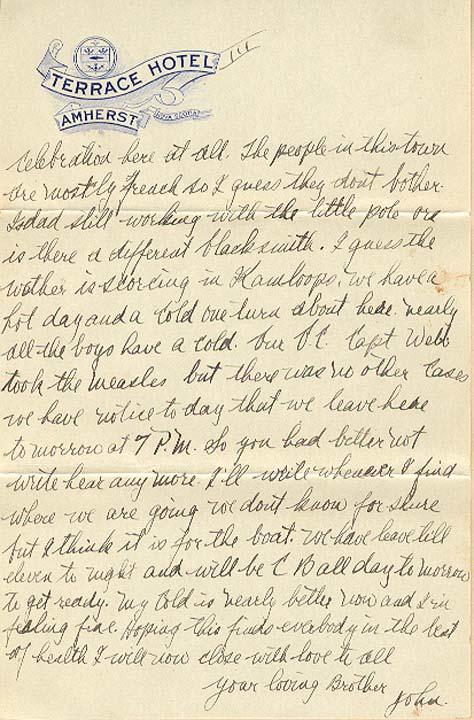 III
TERRACE HOTEL
AMHERST NOVA SCOTIA
celebration here at all. The people in this town
are mostly French so I guess they dont bother.
Is dad still working with the little pole ore
is there a different blacksmith. I guess the
wether is scorcing in Kamloops. we have a
hot day and a cold one turn about here. nearly
all the boys have a cold. Our O.C. Capt Webb
took the measles but there was no other cases
we have notice to day that we leave here
tomorrow at 7 P.M. so you had better not
write hear any more. I'll write whenever I find
where we are going we dont know for shure
but I think it is for the boat. we have leave till
eleven to night and will be C B all day to morrow
to get ready. my cold is nearly better now and I im
feeling fine. Hoping this finds everybody in the best
of health I will now close with love to all
your loving Brother
John.